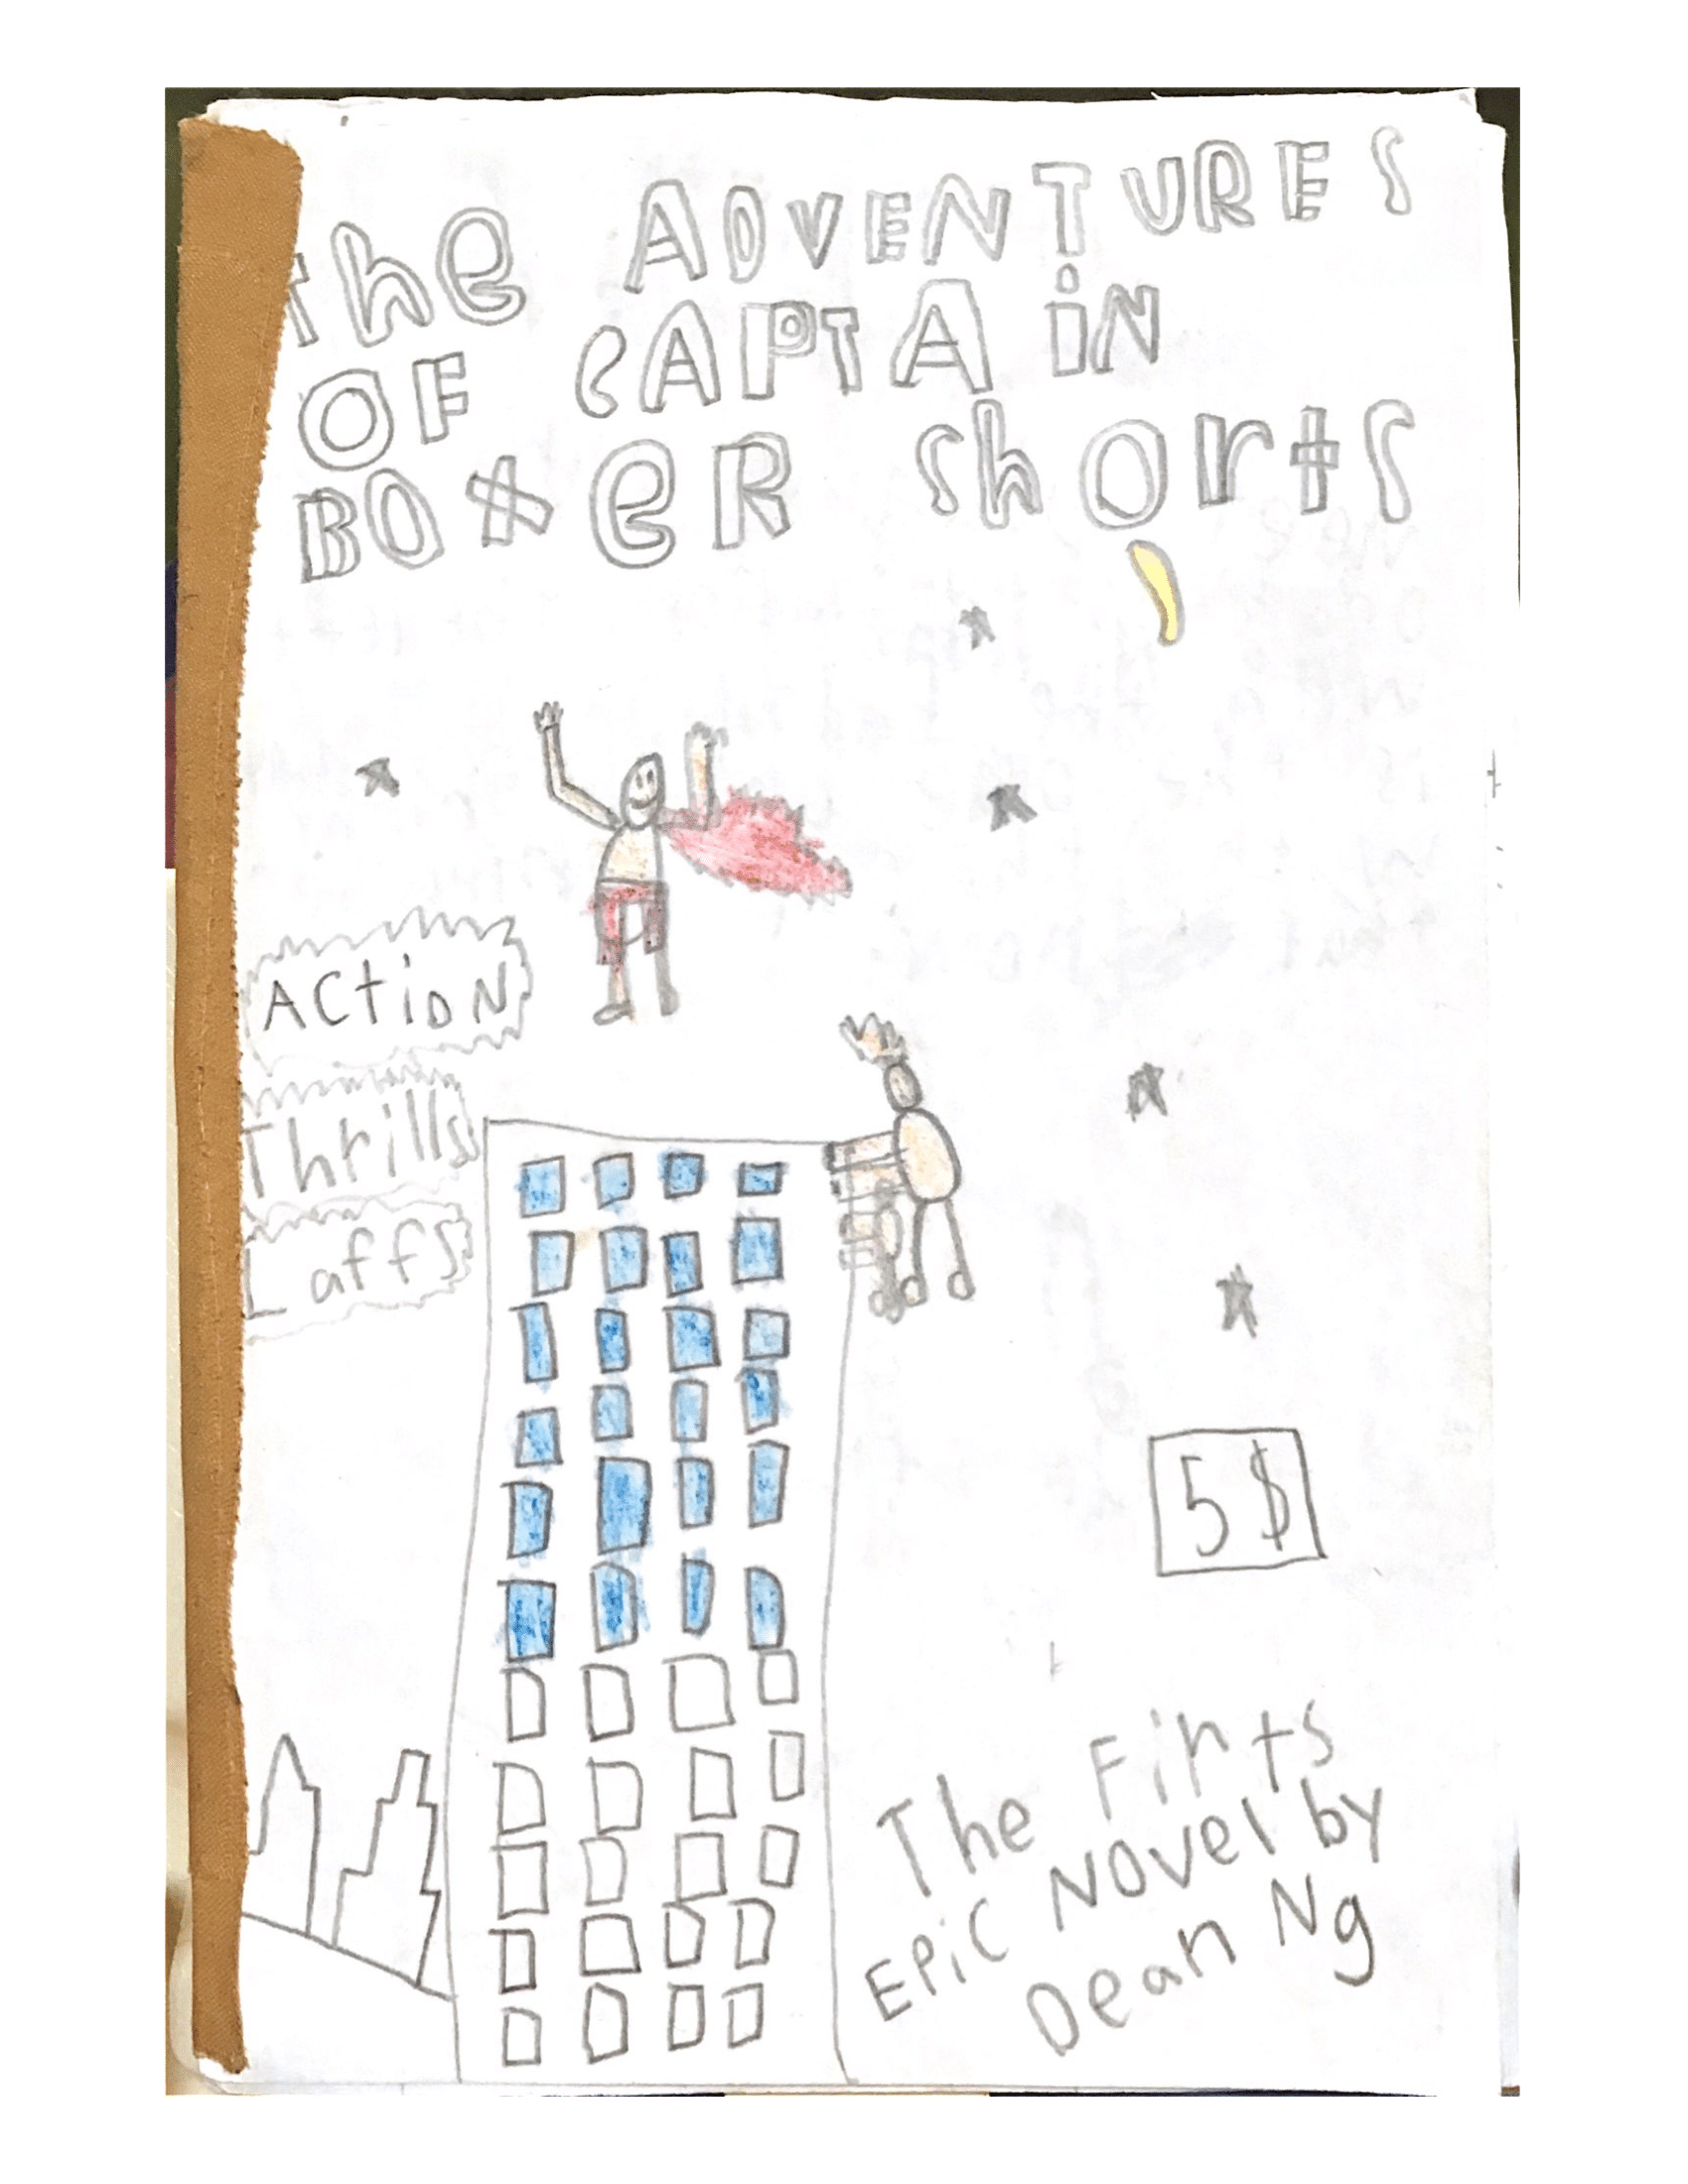 the ADVENTURES
OF CAPTAiN
BOxeR shorts
ACtiON
Thrills
Laffs
5$
The Firts
EPiC Novel by
Dean Ng